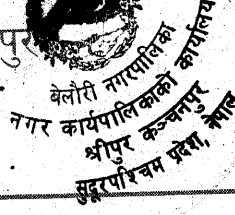 पुर
बेलौरी नगरपालिका
नगर कार्यपालिकाको कार्यालय
श्रीपुर कञ्चनपुर
सुदूरपश्चिम प्रदेश, नेपाल